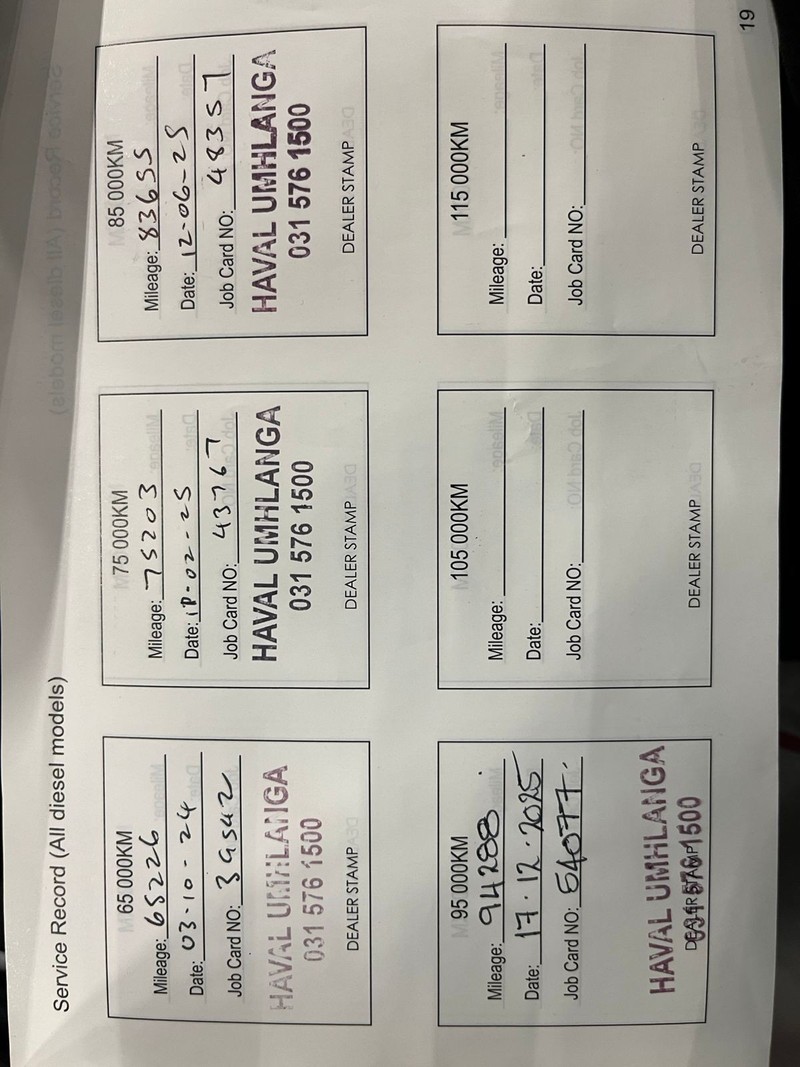 Service Record (All diesel models)
65 000KM
Mileage: 65226
Date: 03-10-24
Job Card NO: 39542
HAVAL UMHLANGA
031 576 1500
DEALER STAMP
75 000KM
Mileage: 75203
Date: 18-02-25
Job Card NO: 43767
HAVAL UMHLANGA
031 576 1500
DEALER STAMP
85 000KM
Mileage: 83655
Date: 12-06-25
Job Card NO: 48357
HAVAL UMHLANGA
031 576 1500
DEALER STAMP
95 000KM
Mileage: 94288
Date: 17.12.2025
Job Card NO: 54077
HAVAL UMHLANGA
031 576 1500
DEALER STAMP
105 000KM
Mileage:
Date:
Job Card NO:
DEALER STAMP
115 000KM
Mileage:
Date:
Job Card NO:
DEALER STAMP
19